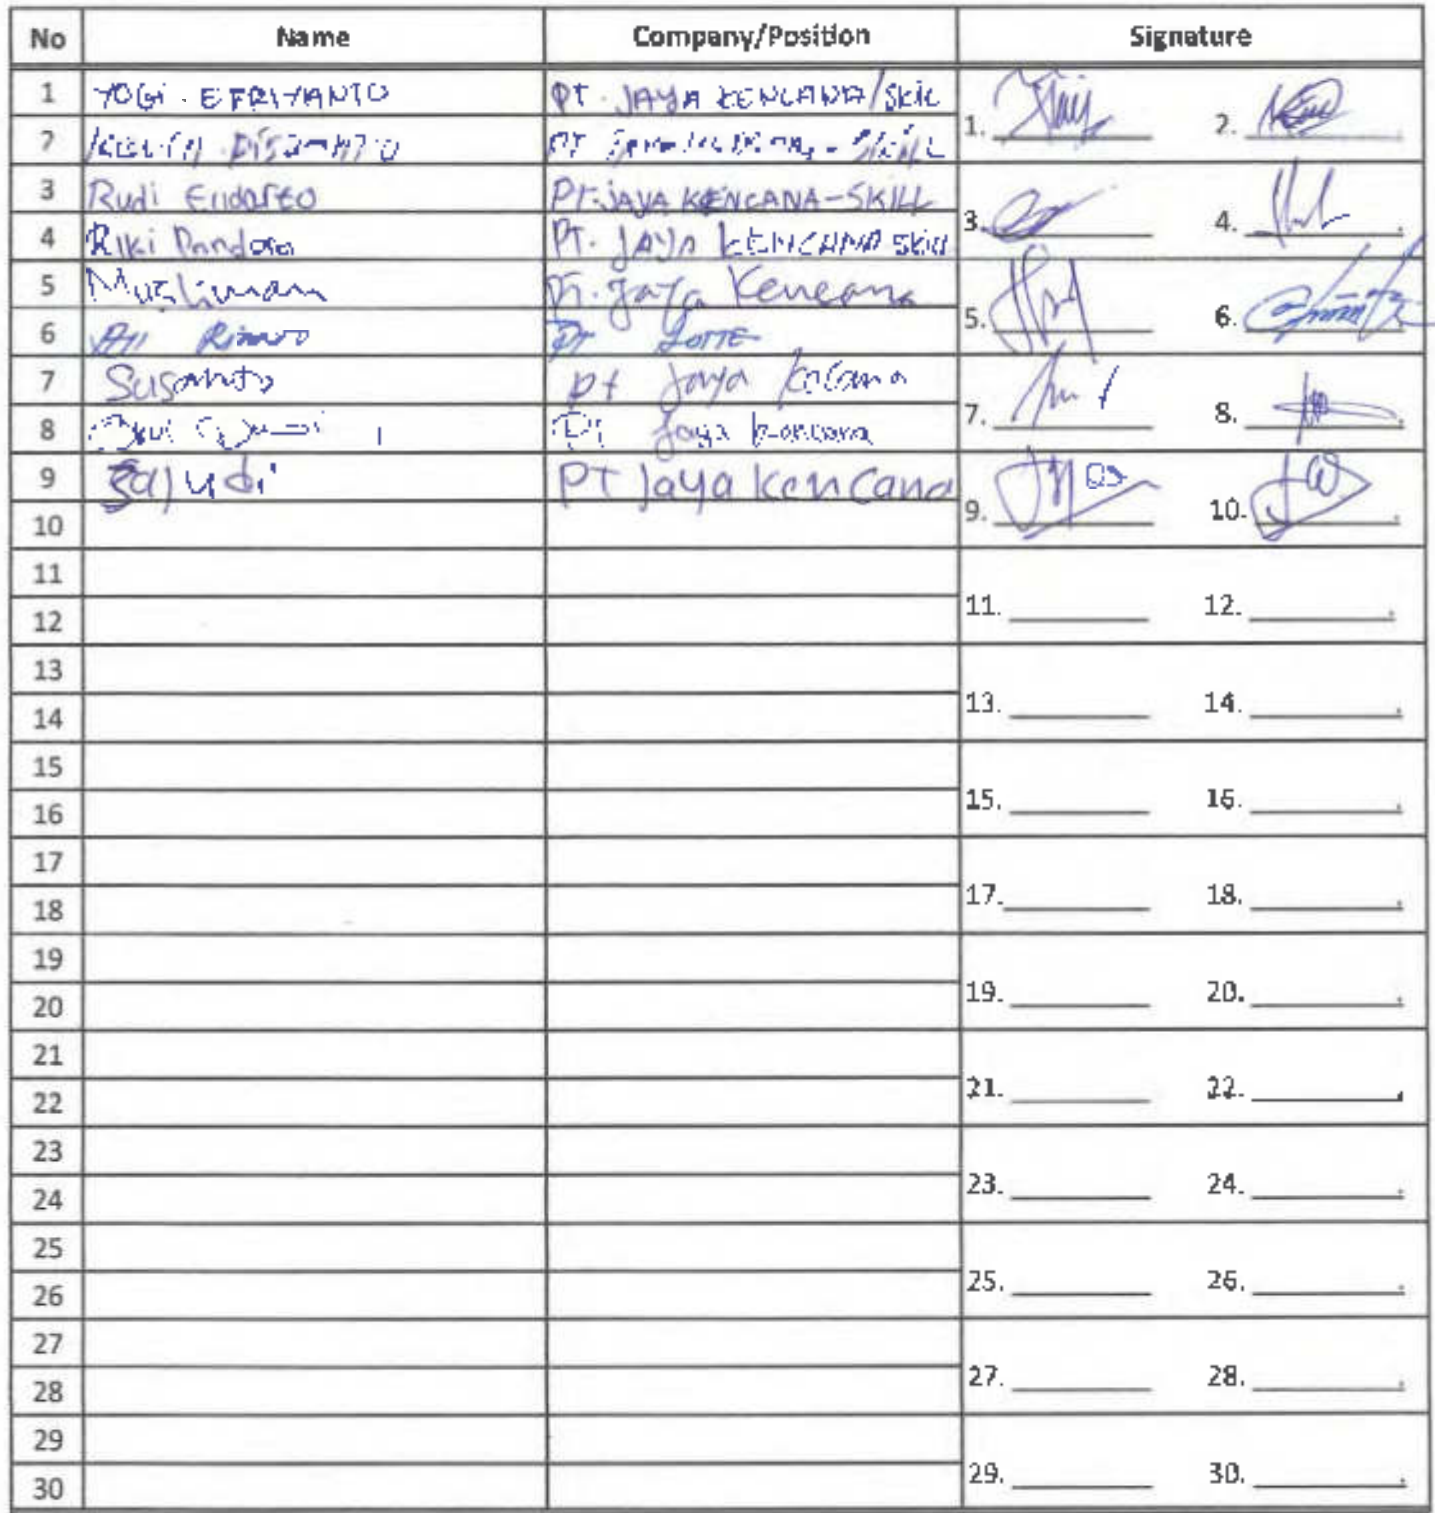 No Name Company/Position Signature
1 YOGI . EFRIYANTO PT. JAYA KENCANA/Skil
2 PT - Skill
1. 2.
3 Rudi Endarto PT. JAYA KENCANA-SKILL
4 Riki Pandora PT. JAYA KENCANA Skill
3. 4.
5 Muslimam PT. Jaya Kencana
6 PT LOTTE
5. 6.
7 Susanto pt Jaya Kelana
8 Pt Jaya kencana
7. 8.
9 Sajudi PT Jaya Kencana
10
9. 10.
11
12
11. 12.
13
14
13. 14.
15
16
15. 16.
17
18
17. 18.
19
20
19. 20.
21
22
21. 22.
23
24
23. 24.
25
26
25. 26.
27
28
27. 28.
29
30
29. 30.